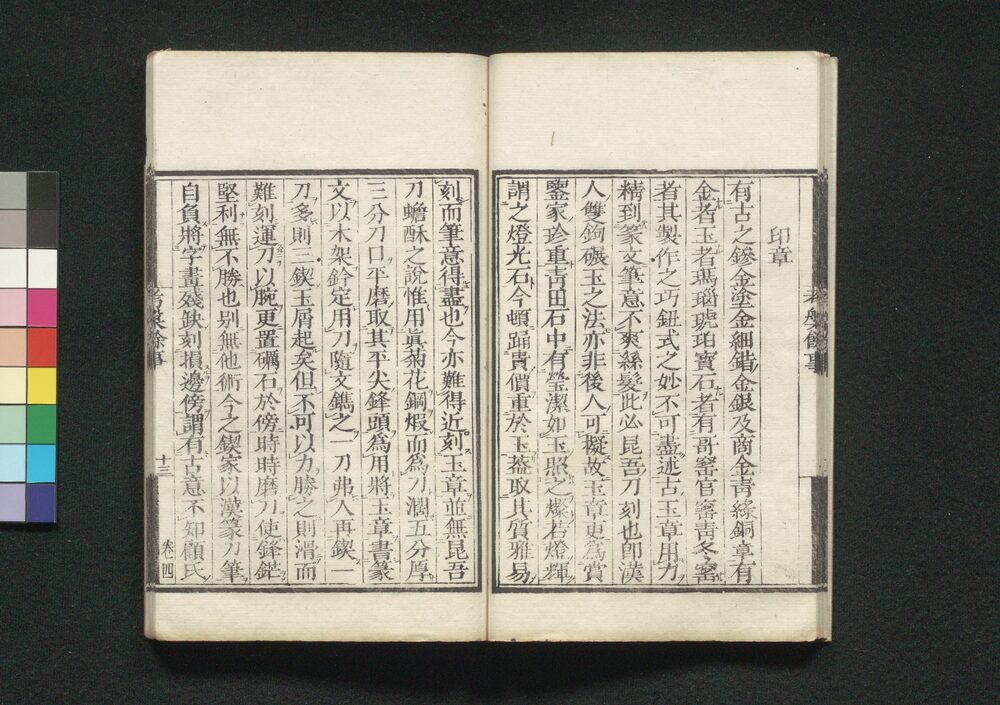 印章
有古之鏒金塗金細錯金銀及商金青綠銅章有
金者玉者瑪瑙琥珀寶石者有哥窰官窰青冬窰
者其製作之巧鈕式之妙不可盡述古玉章用力
精到篆文筆意不爽絲髮此必昆吾刀刻也即漢
人雙鉤碾玉之法亦非後人可擬故玉章更爲賞
鑒家珍重青田石中有瑩潔如玉照之燦若燈輝
謂之燈光石今頓踊貴價重於玉蓋取其質雅易
刻而筆意得盡也今亦難得近刻玉章並無昆吾
刀蟾酥之說惟用眞菊花鋼煆而爲刀濶五分厚
三分刀口平磨取其平尖鋒頭爲用將玉章書篆
文以木架鈐定用刀隨文鐫之一刀弗入再鍥一
刀多則三鍥玉屑起矣但不可以力勝之則滑而
難刻運刀以腕更置礪石於傍時時磨刀使鋒鋩
堅利無不勝也别無他術今之鍥家以漢篆刀筆
自負將字畫殘缺刻損邊傍謂有古意不知顧氏
考槃餘事
十三
卷四